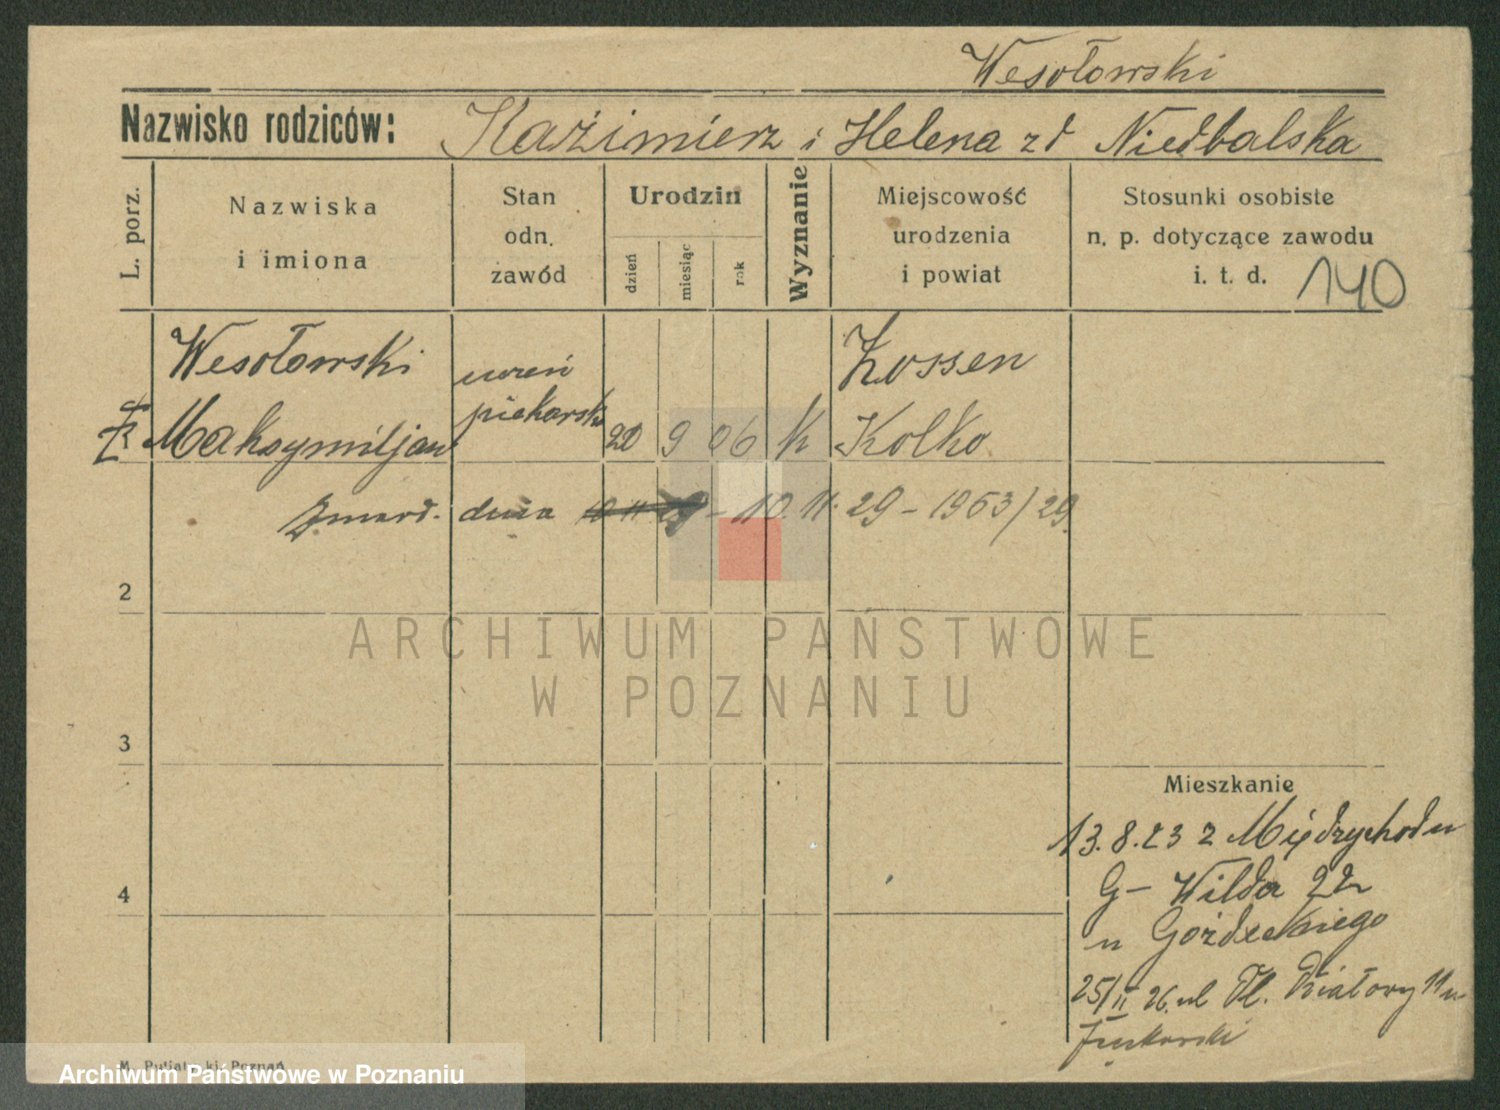 Wesołowski
Nazwisko rodziców: Kaźimierz i Helena zd Niedbalska
L. porz.
Nazwiska
i imiona
Stan
odn.
zawód
Urodzin
dzień
miesiąc
rok
Wyznanie
Miejscowość
urodzenia
i powiat
Stosunki osobiste
n. p. dotyczące zawodu
i. t. d. 140
Wesołowski uczeń Zossen
piekarsk
Maksymiljan 20 9 06 k Kolko
Zmarł. dnia 10 11 29 – 10. 11. 29 – 1963/29
2
ARCHIWUM PAŃSTWOWE
W POZNANIU
3
Mieszkanie
13. 8. 23 z Międzychodu
4
G – Wilda 22
u Goździeckiego
25/II 26. ul Pl. Działowy 11 u
M. Putiatycki, Poznań
Archiwum Państwowe w Poznaniu